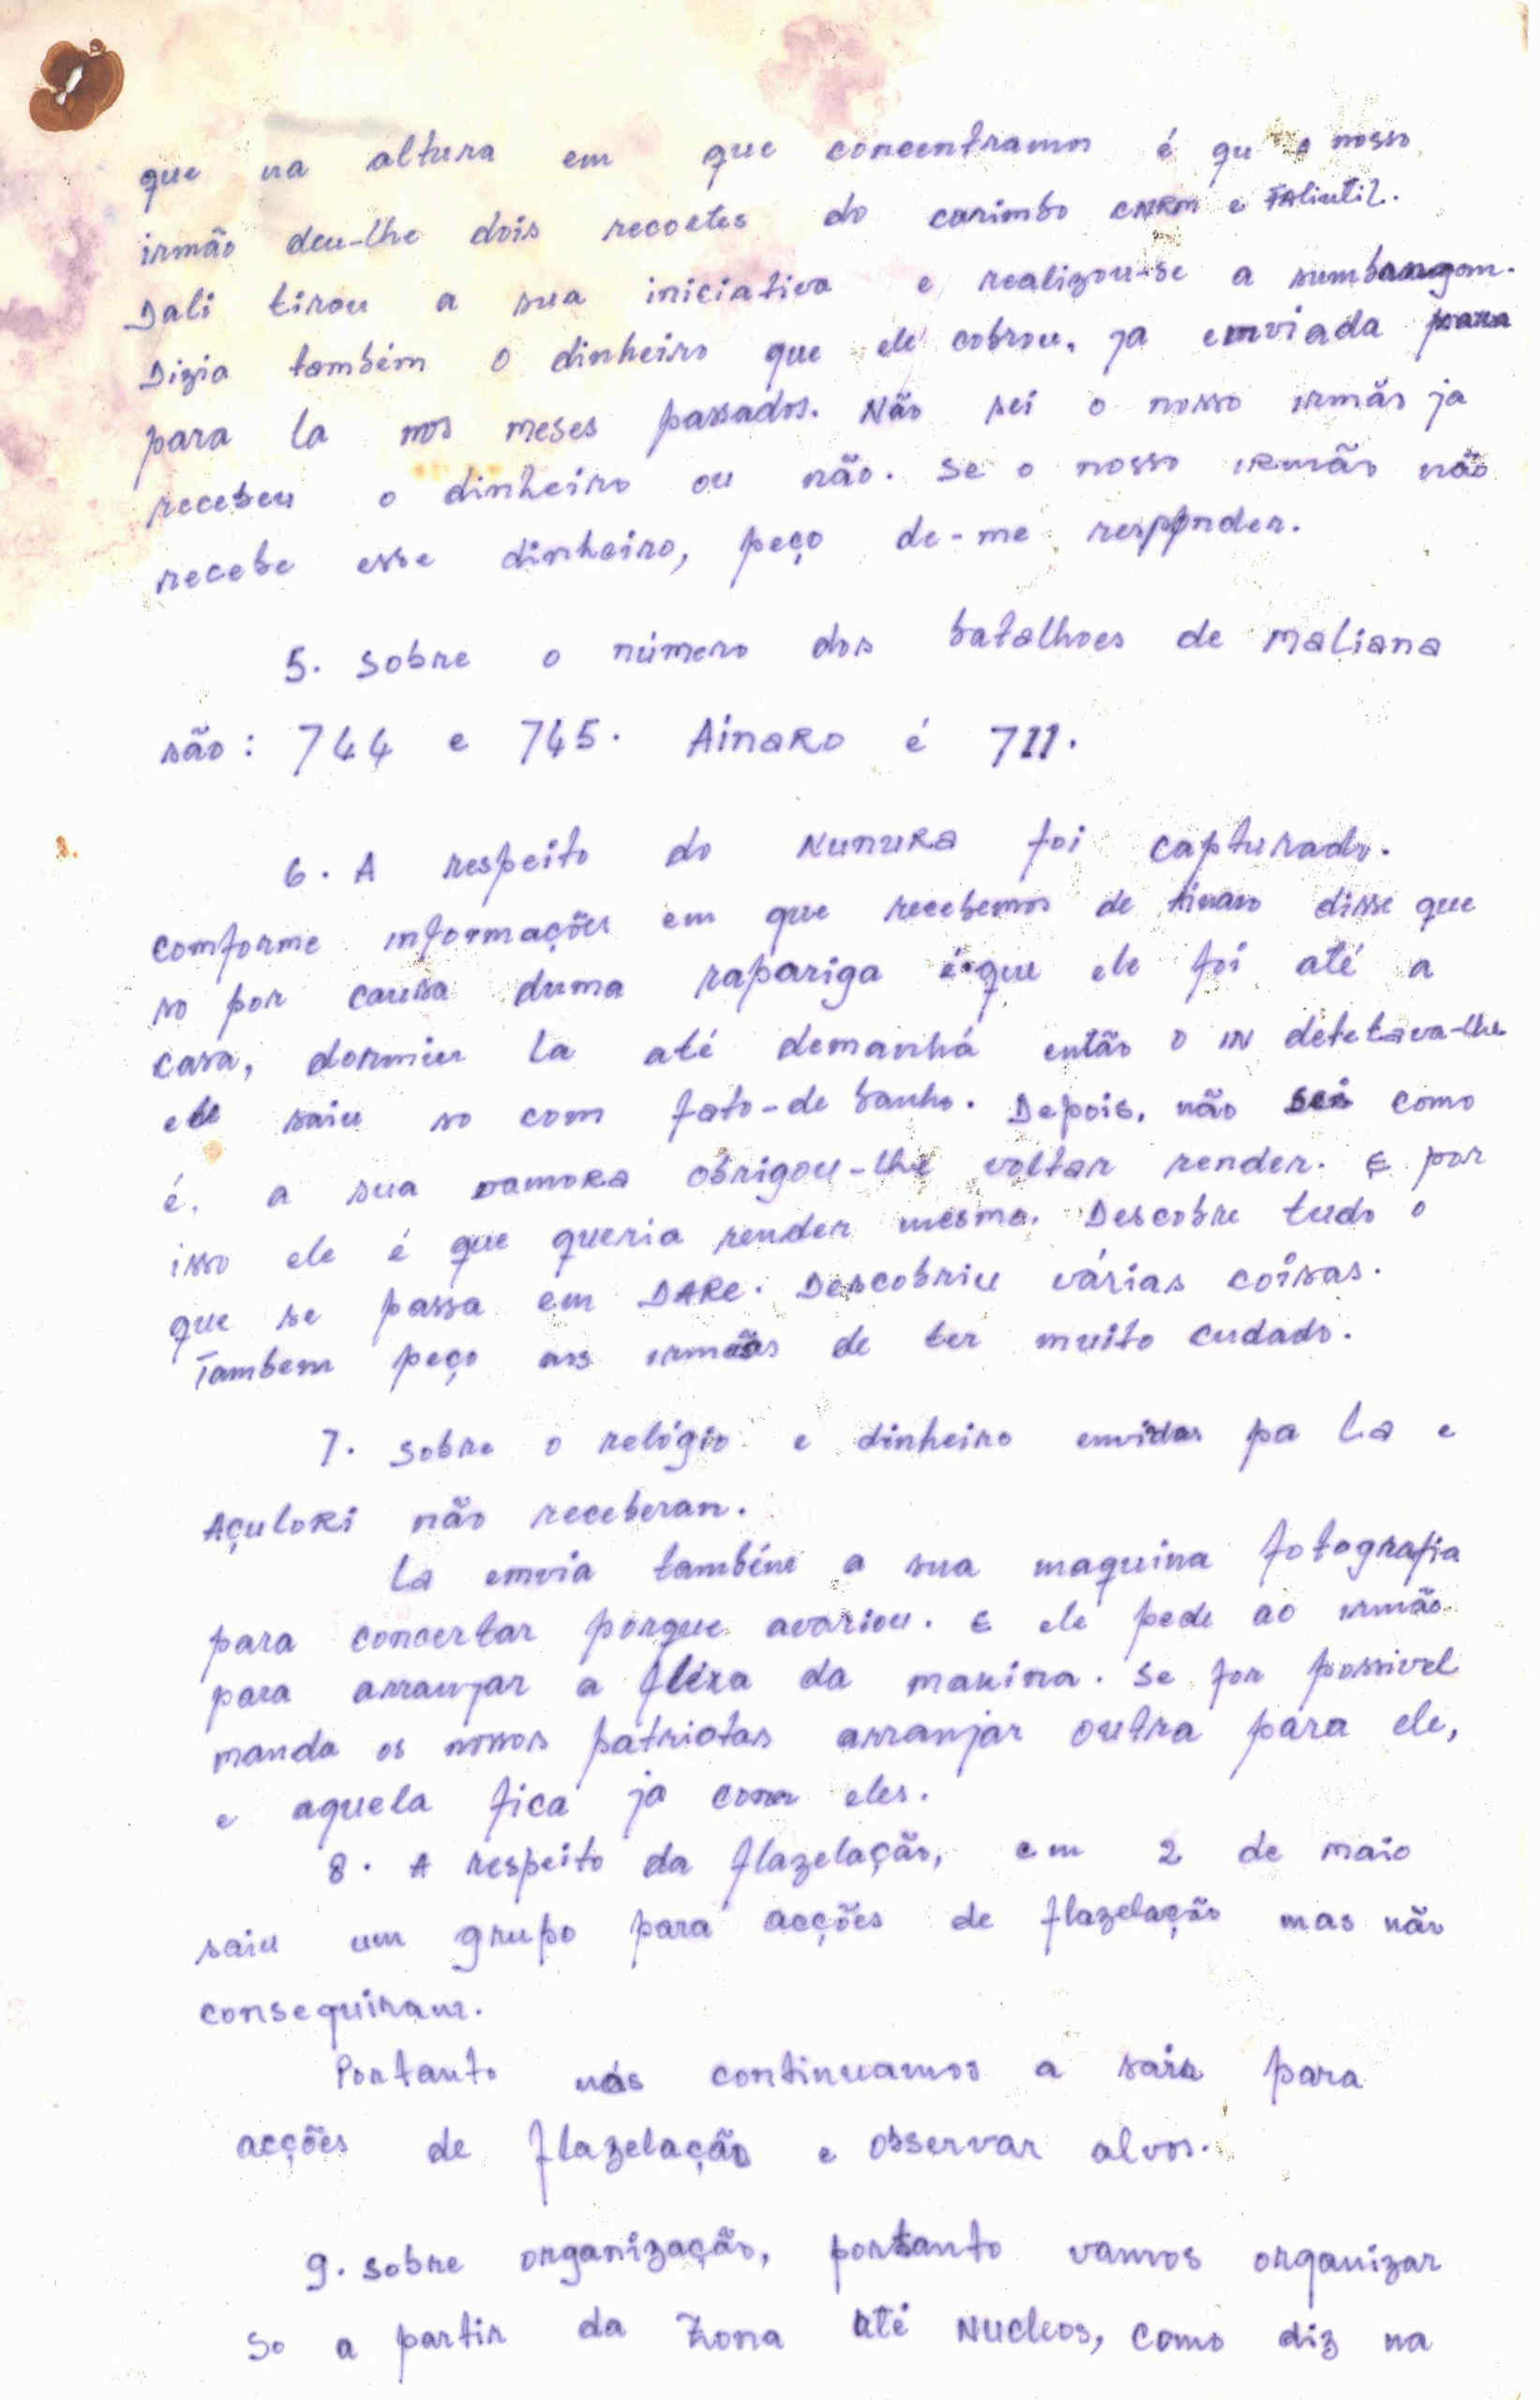 que na altura em que concentramos é qu o nosso
irmão deu-lhe dois recortes do carimbo CNRM e FAlintil.
Dali tirou a sua iniciativa e realizou-se a
Dizia também o dinheiro que ele cobrou, ja enviada para
para la nos meses passados. Não sei o nosso irmão ja
recebeu o dinheiro ou não. Se o nosso irmão não
recebe esse dinheiro, peço de-me responder.
5. Sobre o número dos batalhoes de Maliana
são: 744 e 745. Ainaro é 711.
6. A respeito do Nunura foi capturado.
comforme informações em que recebemos de disse que
so por causa duma rapariga é que ele foi até a
casa, dormiu la até demanhá então o IN detetava-lhe
ele saiu so com fato-de banho. Depois, não sei como
é, a sua namora obrigou-lhe voltar render. E por
isso ele é que queria render mesmo. Descobre tudo o
que se passa em DARE. Descobriu várias coisas.
Tambem peço aos irmãos de ter muito cudado.
7. Sobre o relógio e dinheiro envidas pa La e
Açulori não receberan.
La envia também a sua maquina fotografia
para concertar porque avariou. E ele pede ao irmão
para arranjar a flexa da makina. Se for possivel
manda os nossos patriotas arranjar outra para ele,
e aquela fica ja com eles.
8. A respeito da flazelação, em 2 de maio
saiu um grupo para acções de flazelação mas não
conseguiram.
Portanto nós continuamos a sair para
acções de flazelação e observar alvos.
9. Sobre organização, portanto vamos organizar
So a partir da Zona até Nucleos, como diz na